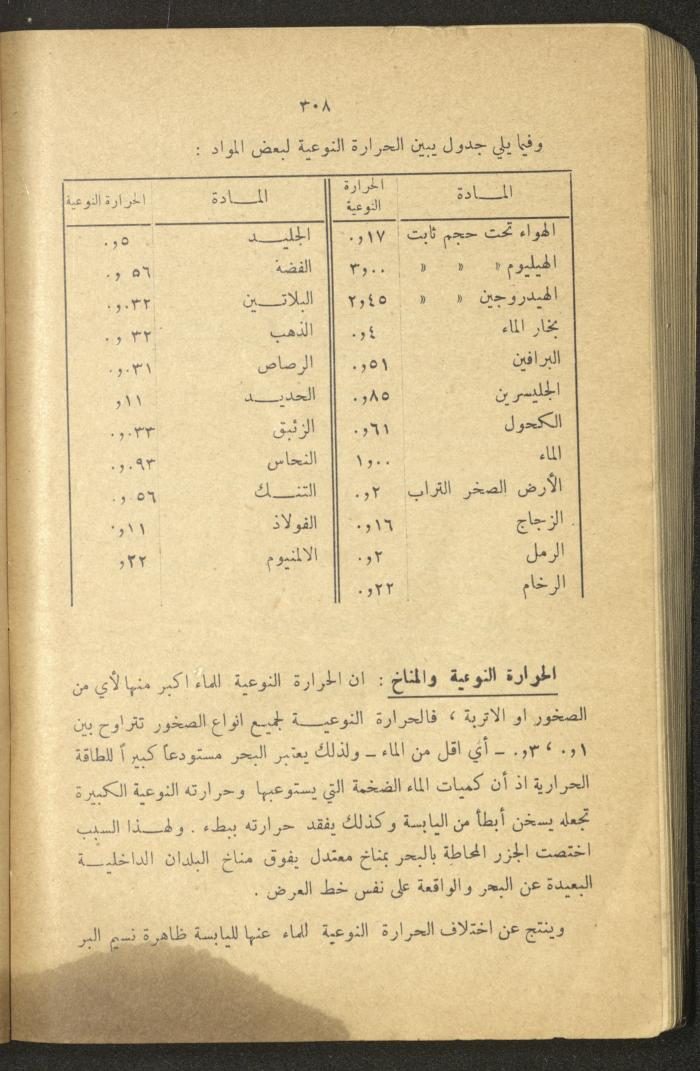 ٣٠٨
وفيما يلي جدول يبين الحرارة النوعية لبعض المواد :
المـــادة الحرارة النوعية المـــادة الحرارة النوعية
الهواء تحت حجم ثابت ٠,١٧ الجليـــد ٠,٥
الهيليوم » » » ٣,٠٠ الفضة ٠,٠٥٦
الهيدروجين » » ٢,٤٥ البلاتـــين ٠,٠٣٢
بخار الماء ٠,٤ الذهب ٠,٠٣٢
البرافين ٠,٥١ الرصاص ٠,٠٣١
الجليسرين ٠,٨٥ الحديـــد ,١١
الكحول ٠,٦١ الزئبق ٠,٠٣٣
الماء ١,٠٠ النحاس ٠,٠٩٣
الأرض الصخر التراب ٠,٢ التنـــك ٠,٠٥٦
الزجاج ٠,١٦ الفولاذ ٠,١١
الرمل ٠,٢ الالمنيوم ,٢٢
الرخام ٠,٢٢
الحرارة النوعية والمناخ : ان الحرارة النوعية للماء اكبر منها لأي من
الصخور او الاتربة ، فالحرارة النوعيـــة لجميع انواع الصخور تتراوح بين
٠,١ ، ٠,٣ ـ أي اقل من الماء ـ ولذلك يعتبر البحر مستودعاً كبيراً للطاقة
الحرارية اذ أن كميات الماء الضخمة التي يستوعبها وحرارته النوعية الكبيرة
تجعله يسخن أبطأ من اليابسة وكذلك يفقد حرارته ببطء . ولهـــذا السبب
اختصت الجزر المحاطة بالبحر بمناخ معتدل يفوق مناخ البلدان الداخليـــة
البعيدة عن البحر والواقعة على نفس خط العرض .
وينتج عن اختلاف الحرارة النوعية للماء عنها لليابسة ظاهرة نسيم البر